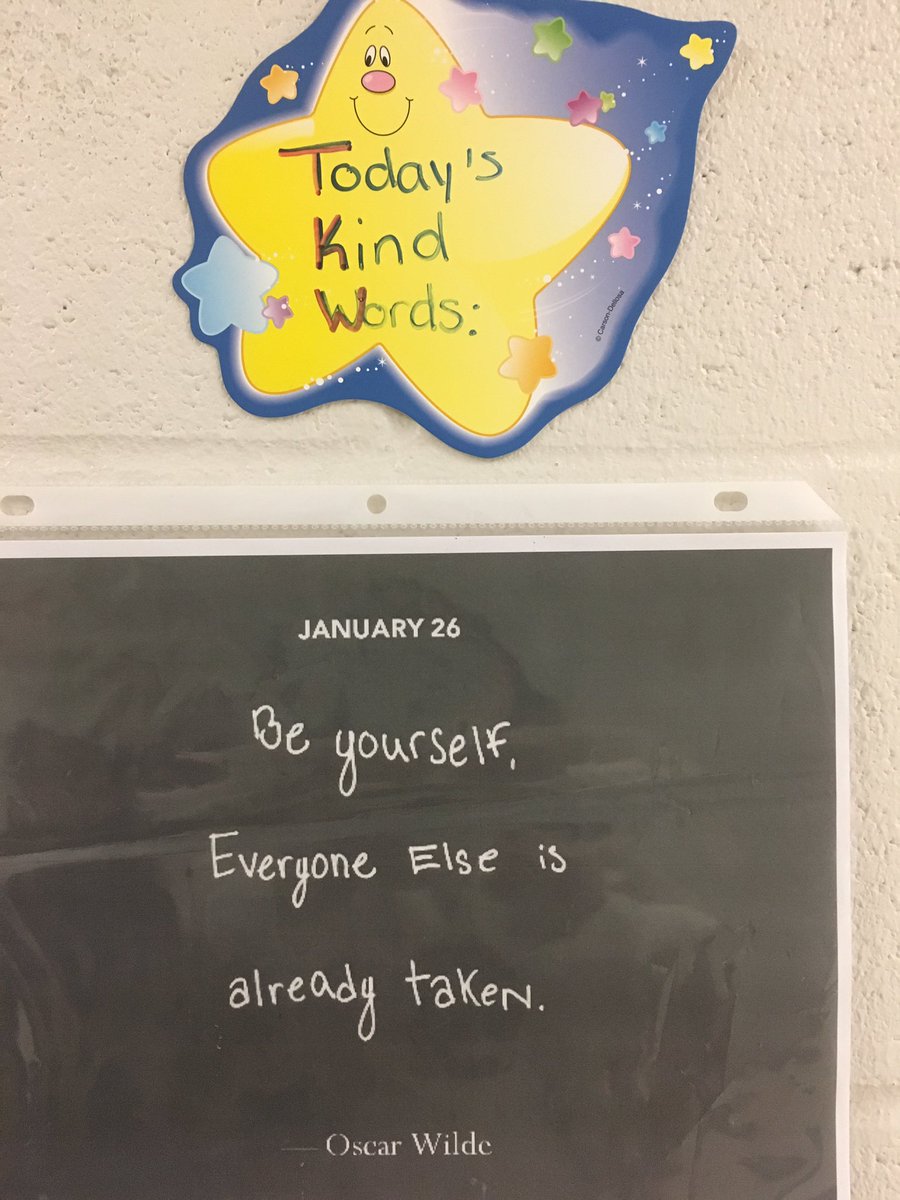 Today's
Kind
Words:
© Carson-Dellosa
JANUARY 26
Be yourself,
Everyone Else is
already taken.
— Oscar Wilde